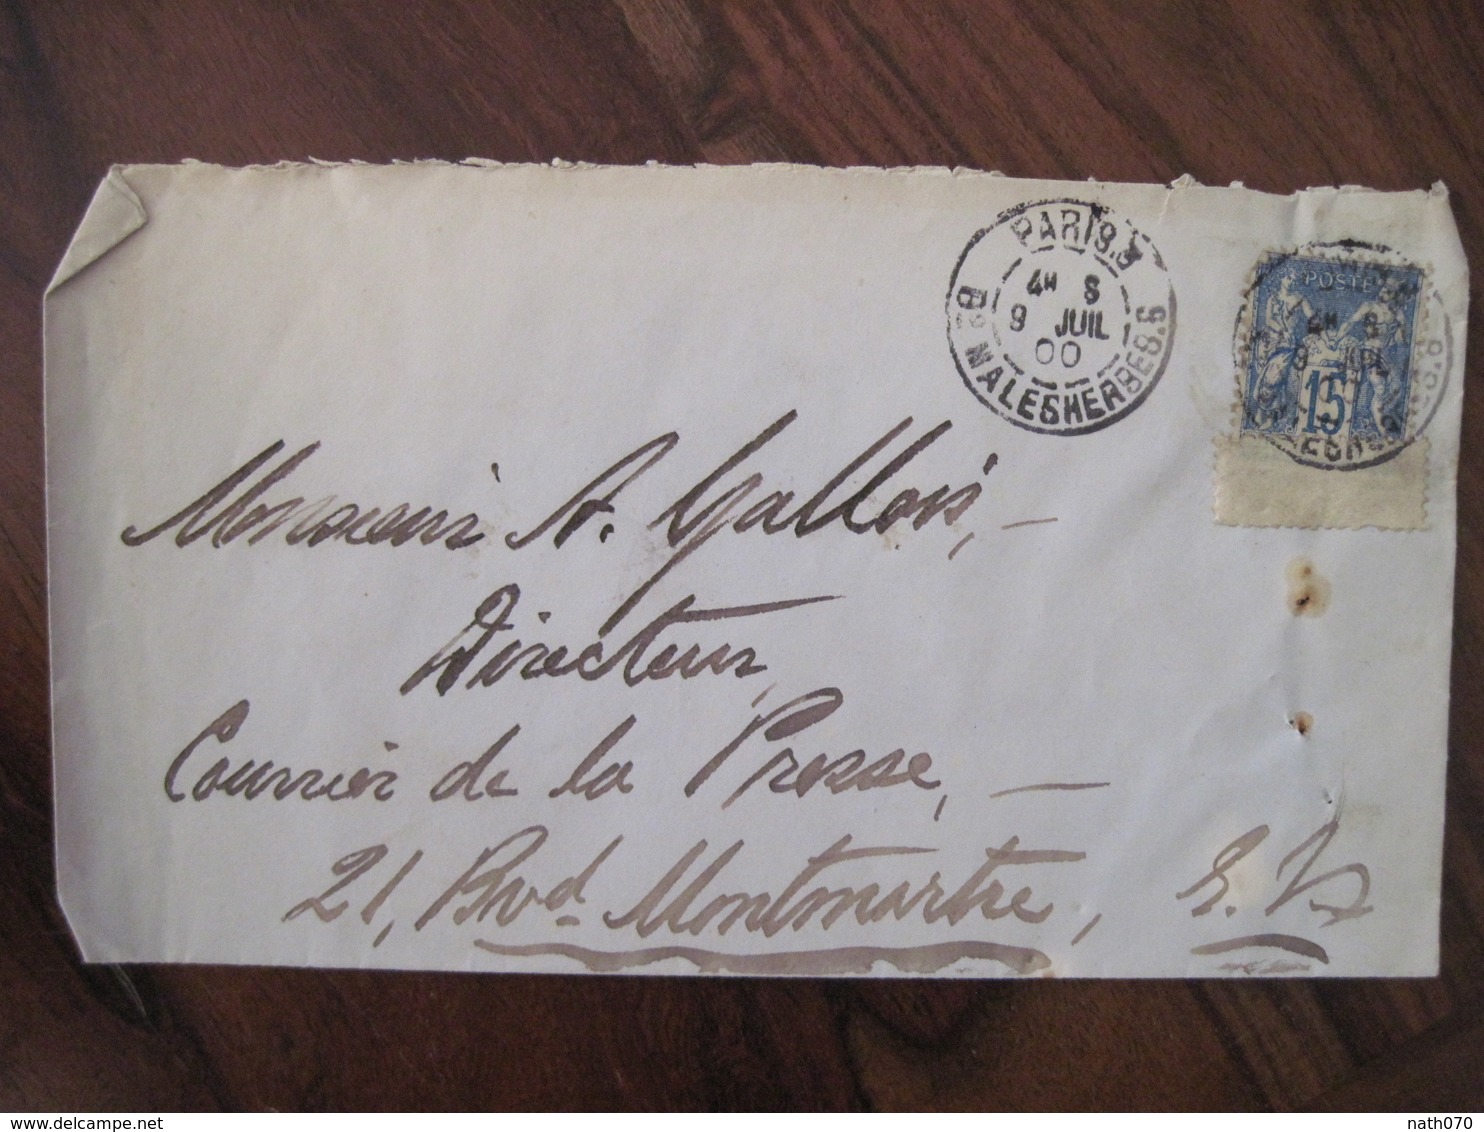 PARIS.3
4H S
9 JUIL
00
Bd MALESHERBES.S
POSTE
4H S
9 JUIL
15
Monsieur A. Gallois, —
Directeur,
Courrier de la Presse, —
21, Bvd Montmartre, E.V.
www.delcampe.net
nath070